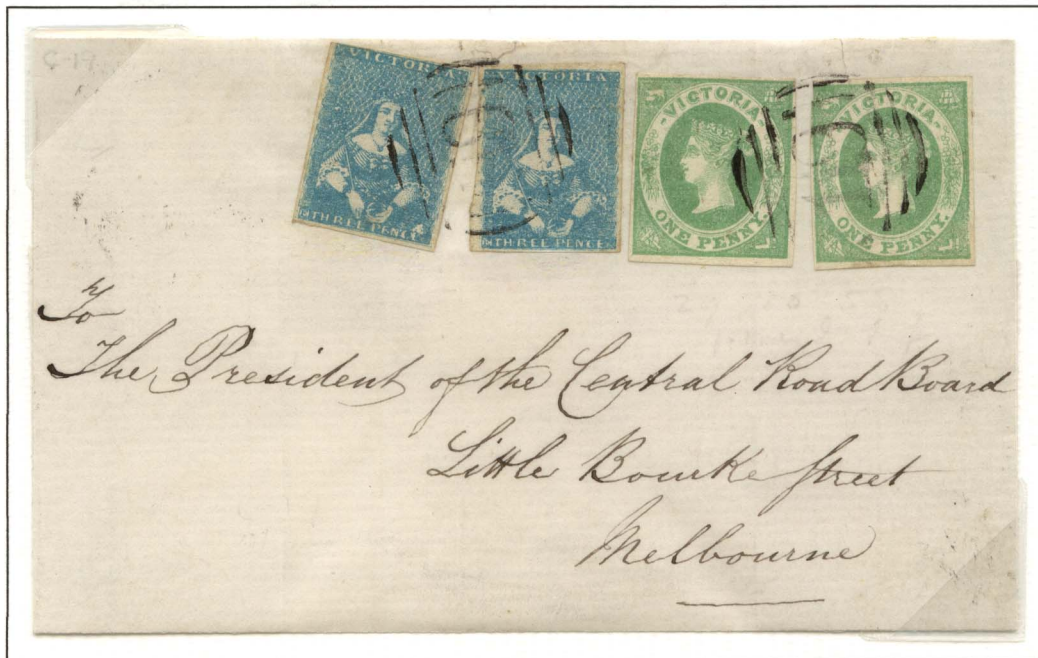 C-19
VICTORIA
THREE PENCE
VICTORIA
THREE PENCE
VICTORIA
ONE PENNY.
VICTORIA
ONE PENNY.
To
The President of the Central Road Board
Little Bourke Street
Melbourne